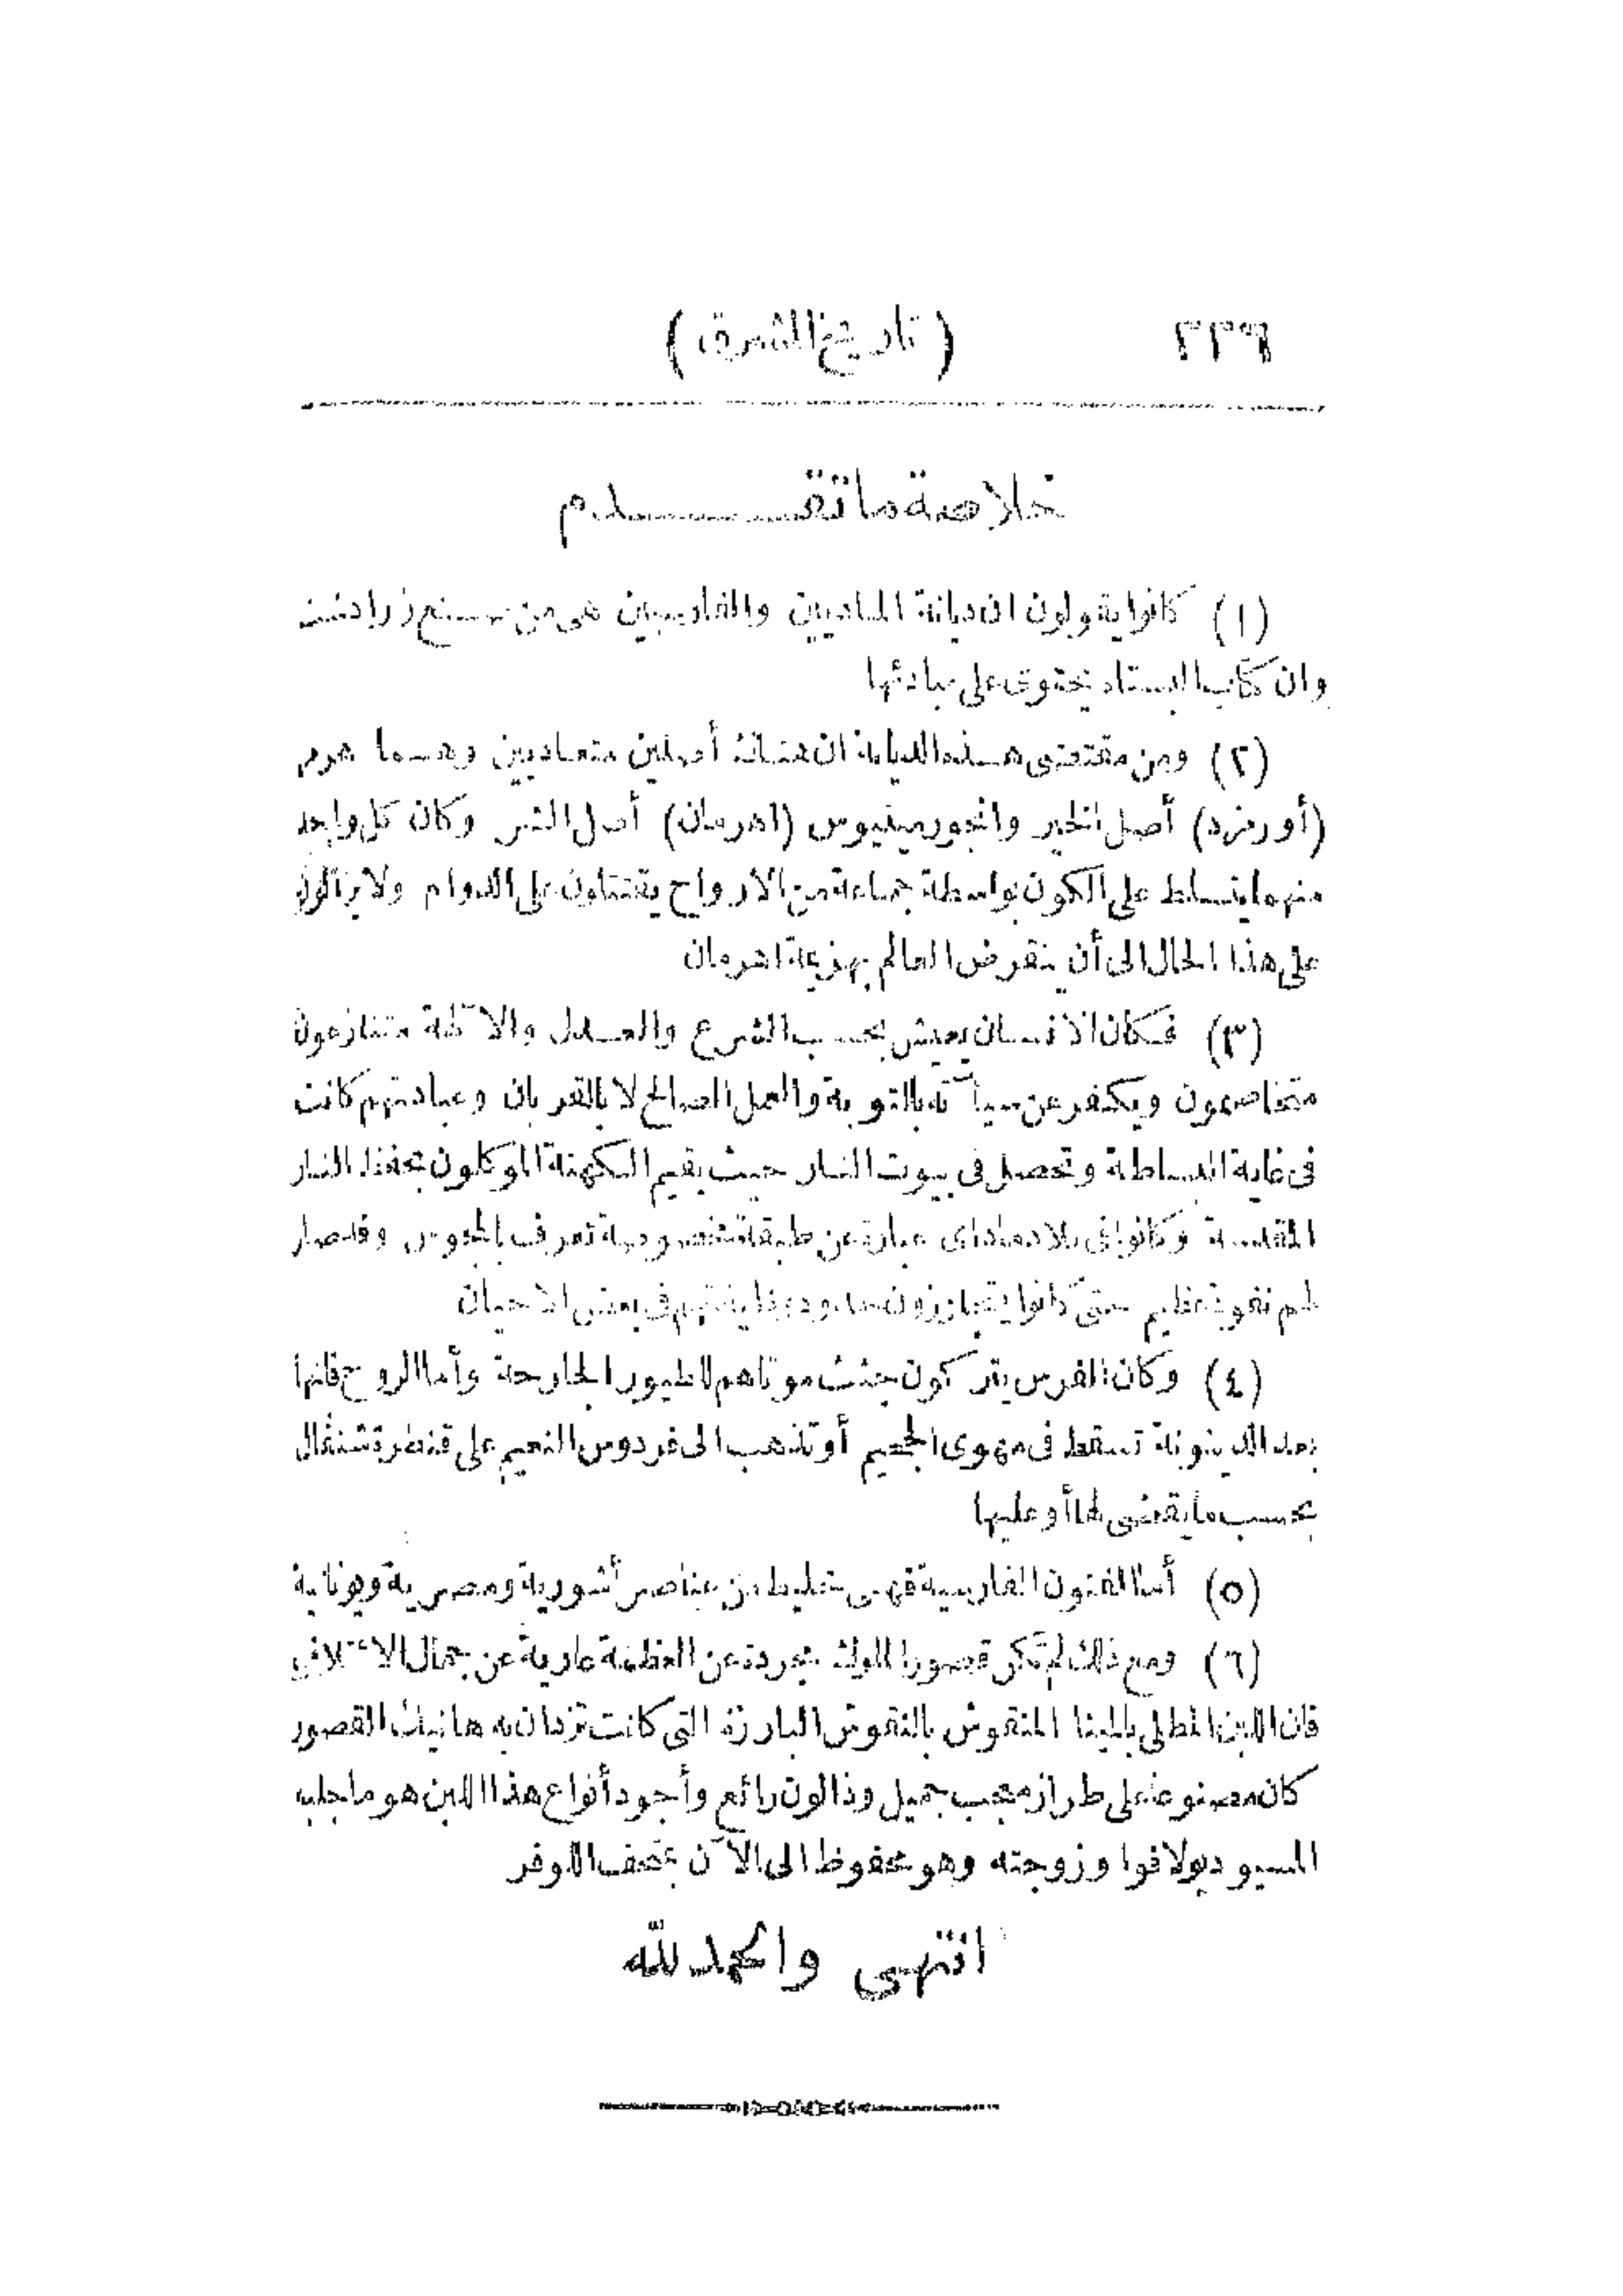 ٢٣٦ ( تاريخ المشرق )
خلاصة ما تقدم
(١) كانوا يقولون ان ديانة الماديين والفارسيين هى من صنع زرادشت
وان كتاب الابستاه يحتوى على مبادئها
(٢) ومن مقتضى هذه الديانة ان هناك أصلين متعاديين وهما هرمز
(أورمزد) أصل الخير وانجورمينيوس (اهرمان) أصل الشر وكان كل واحد
منهما يتسلط على الكون بواسطة جماعة من الارواح يقتتلون على الدوام ولا يزالون
على هذا الحال الى أن ينقرض العالم بهزيمة اهرمان
(٣) فكان الانسان يعيش بحسب الشرع والعدل والآلهة متنازعون
متخاصمون ويكفر عن سيآته بالتوبة والعمل الصالح لا بالقربان وعبادتهم كانت
فى غاية البساطة وتحصل فى بيوت النار حيث يقيم الكهنة الموكلون بحفظ النار
المقدسة وكانوا فى بلاد ماداى عبارة عن طبقة مخصوصة تعرف بالمجوس وقد صار
لهم نفوذ عظيم حتى كانوا يتجاوزون حدود وظيفتهم فى بعض الاحيان
(٤) وكان الفرس يتركون جثث موتاهم للطيور الجارحة وأما الروح فانها
بعد الدينونة تسقط فى مهوى الجحيم أو تذهب الى فردوس النعيم على قنطرة شنفال
بحسب ما يقضى لها أو عليها
(٥) أما الفنون الفارسية فهى خليط من عناصر أشورية ومصرية ويونانية
(٦) ومع ذلك لم تكن قصور الملوك مجردة عن العظمة عارية عن جمال الائتلاف
فان اللبن المطلى بالمينا المنقوش بالنقوش البارزة التى كانت تزدان به هاتيك القصور
كان مصنوعا على طراز معجب جميل وذا لون رائع وأجود أنواع هذا اللبن هو ما جلبه
المسيو ديولافوا وزوجته وهو محفوظ الى الآن بمتحف اللوفر
انتهى والحمد لله